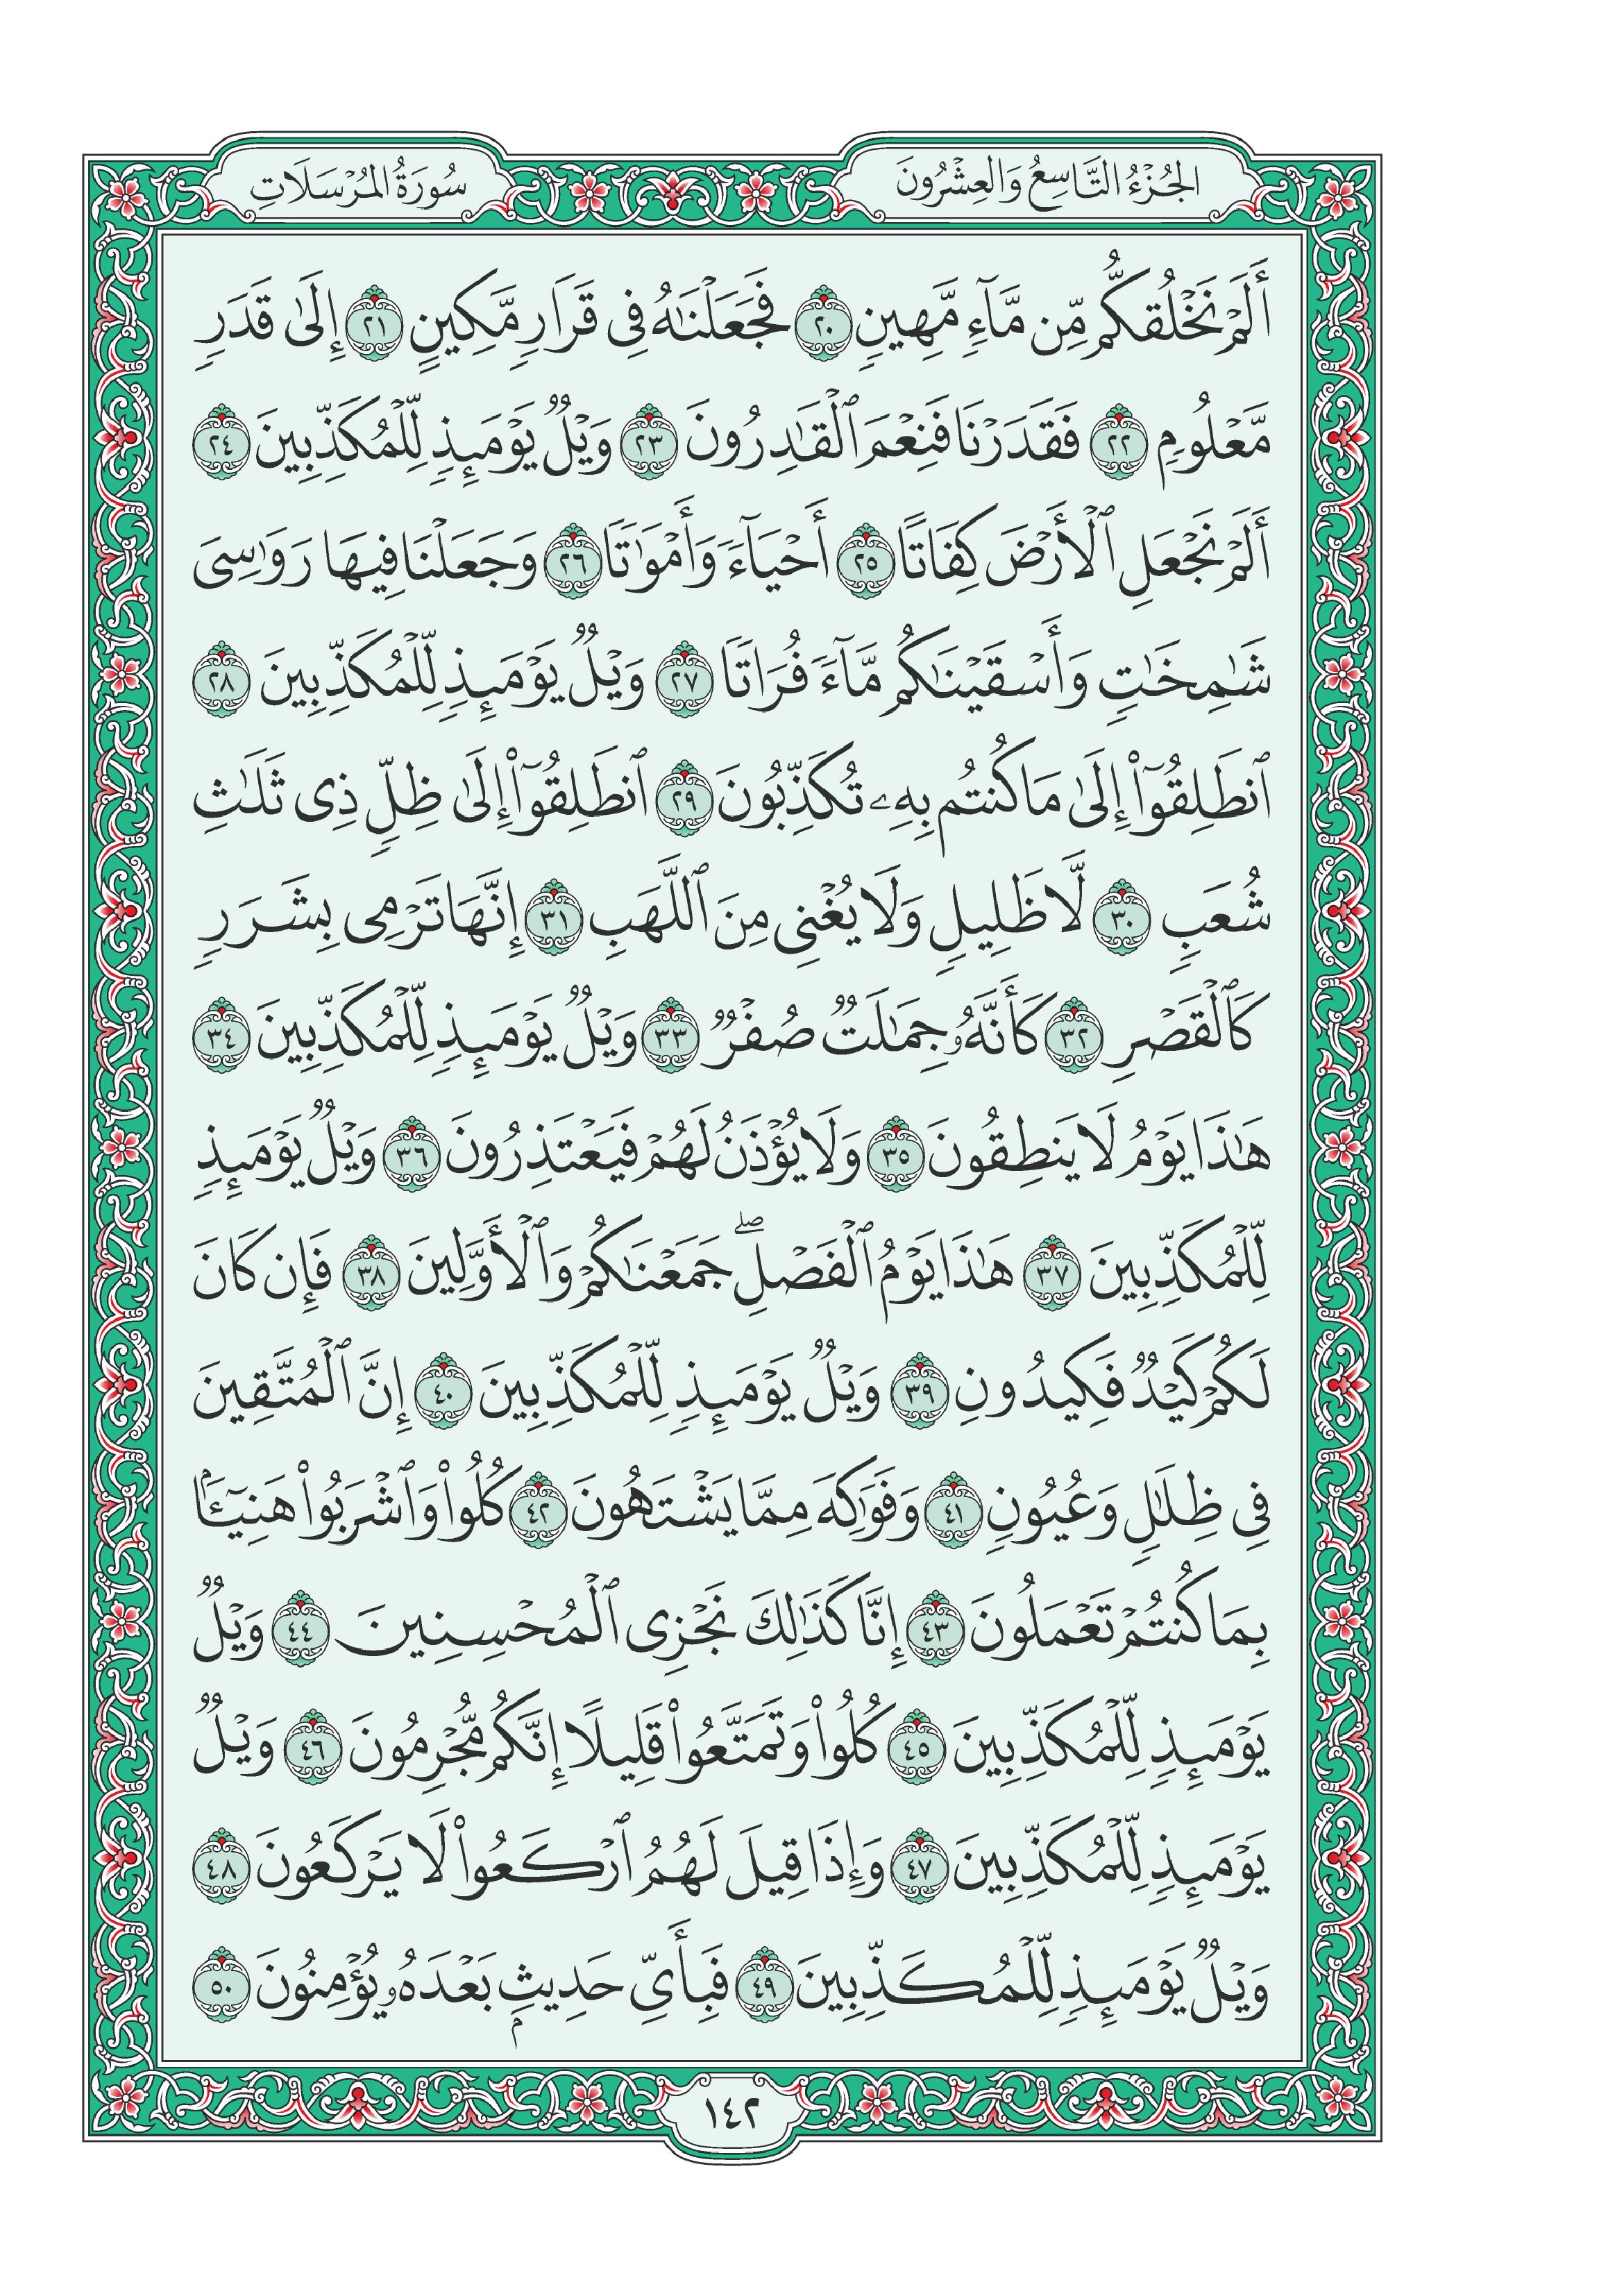 الجُزْءُ التَّاسِعُ وَالعِشْرُونَ
سُورَةُ المُرْسَلَاتِ
أَلَمْ نَخْلُقكُّم مِّن مَّآءٍ مَّهِينٍ ٢٠ فَجَعَلْنَٰهُ فِى قَرَارٍ مَّكِينٍ ٢١ إِلَىٰ قَدَرٍ
مَّعْلُومٍ ٢٢ فَقَدَرْنَا فَنِعْمَ ٱلْقَٰدِرُونَ ٢٣ وَيْلٌ يَوْمَئِذٍ لِّلْمُكَذِّبِينَ ٢٤
أَلَمْ نَجْعَلِ ٱلْأَرْضَ كِفَاتًا ٢٥ أَحْيَآءً وَأَمْوَٰتًا ٢٦ وَجَعَلْنَا فِيهَا رَوَٰسِىَ
شَٰمِخَٰتٍ وَأَسْقَيْنَٰكُم مَّآءً فُرَاتًا ٢٧ وَيْلٌ يَوْمَئِذٍ لِّلْمُكَذِّبِينَ ٢٨
ٱنطَلِقُوٓا۟ إِلَىٰ مَا كُنتُم بِهِۦ تُكَذِّبُونَ ٢٩ ٱنطَلِقُوٓا۟ إِلَىٰ ظِلٍّ ذِى ثَلَٰثِ
شُعَبٍ ٣٠ لَّا ظَلِيلٍ وَلَا يُغْنِى مِنَ ٱللَّهَبِ ٣١ إِنَّهَا تَرْمِى بِشَرَرٍ
كَٱلْقَصْرِ ٣٢ كَأَنَّهُۥ جِمَٰلَتٌ صُفْرٌ ٣٣ وَيْلٌ يَوْمَئِذٍ لِّلْمُكَذِّبِينَ ٣٤
هَٰذَا يَوْمُ لَا يَنطِقُونَ ٣٥ وَلَا يُؤْذَنُ لَهُمْ فَيَعْتَذِرُونَ ٣٦ وَيْلٌ يَوْمَئِذٍ
لِّلْمُكَذِّبِينَ ٣٧ هَٰذَا يَوْمُ ٱلْفَصْلِ ۖ جَمَعْنَٰكُمْ وَٱلْأَوَّلِينَ ٣٨ فَإِن كَانَ
لَكُمْ كَيْدٌ فَكِيدُونِ ٣٩ وَيْلٌ يَوْمَئِذٍ لِّلْمُكَذِّبِينَ ٤٠ إِنَّ ٱلْمُتَّقِينَ
فِى ظِلَٰلٍ وَعُيُونٍ ٤١ وَفَوَٰكِهَ مِمَّا يَشْتَهُونَ ٤٢ كُلُوا۟ وَٱشْرَبُوا۟ هَنِيٓـًٔۢا
بِمَا كُنتُمْ تَعْمَلُونَ ٤٣ إِنَّا كَذَٰلِكَ نَجْزِى ٱلْمُحْسِنِينَ ٤٤ وَيْلٌ
يَوْمَئِذٍ لِّلْمُكَذِّبِينَ ٤٥ كُلُوا۟ وَتَمَتَّعُوا۟ قَلِيلًا إِنَّكُم مُّجْرِمُونَ ٤٦ وَيْلٌ
يَوْمَئِذٍ لِّلْمُكَذِّبِينَ ٤٧ وَإِذَا قِيلَ لَهُمُ ٱرْكَعُوا۟ لَا يَرْكَعُونَ ٤٨
وَيْلٌ يَوْمَئِذٍ لِّلْمُكَذِّبِينَ ٤٩ فَبِأَىِّ حَدِيثٍۭ بَعْدَهُۥ يُؤْمِنُونَ ٥٠
١٤٢